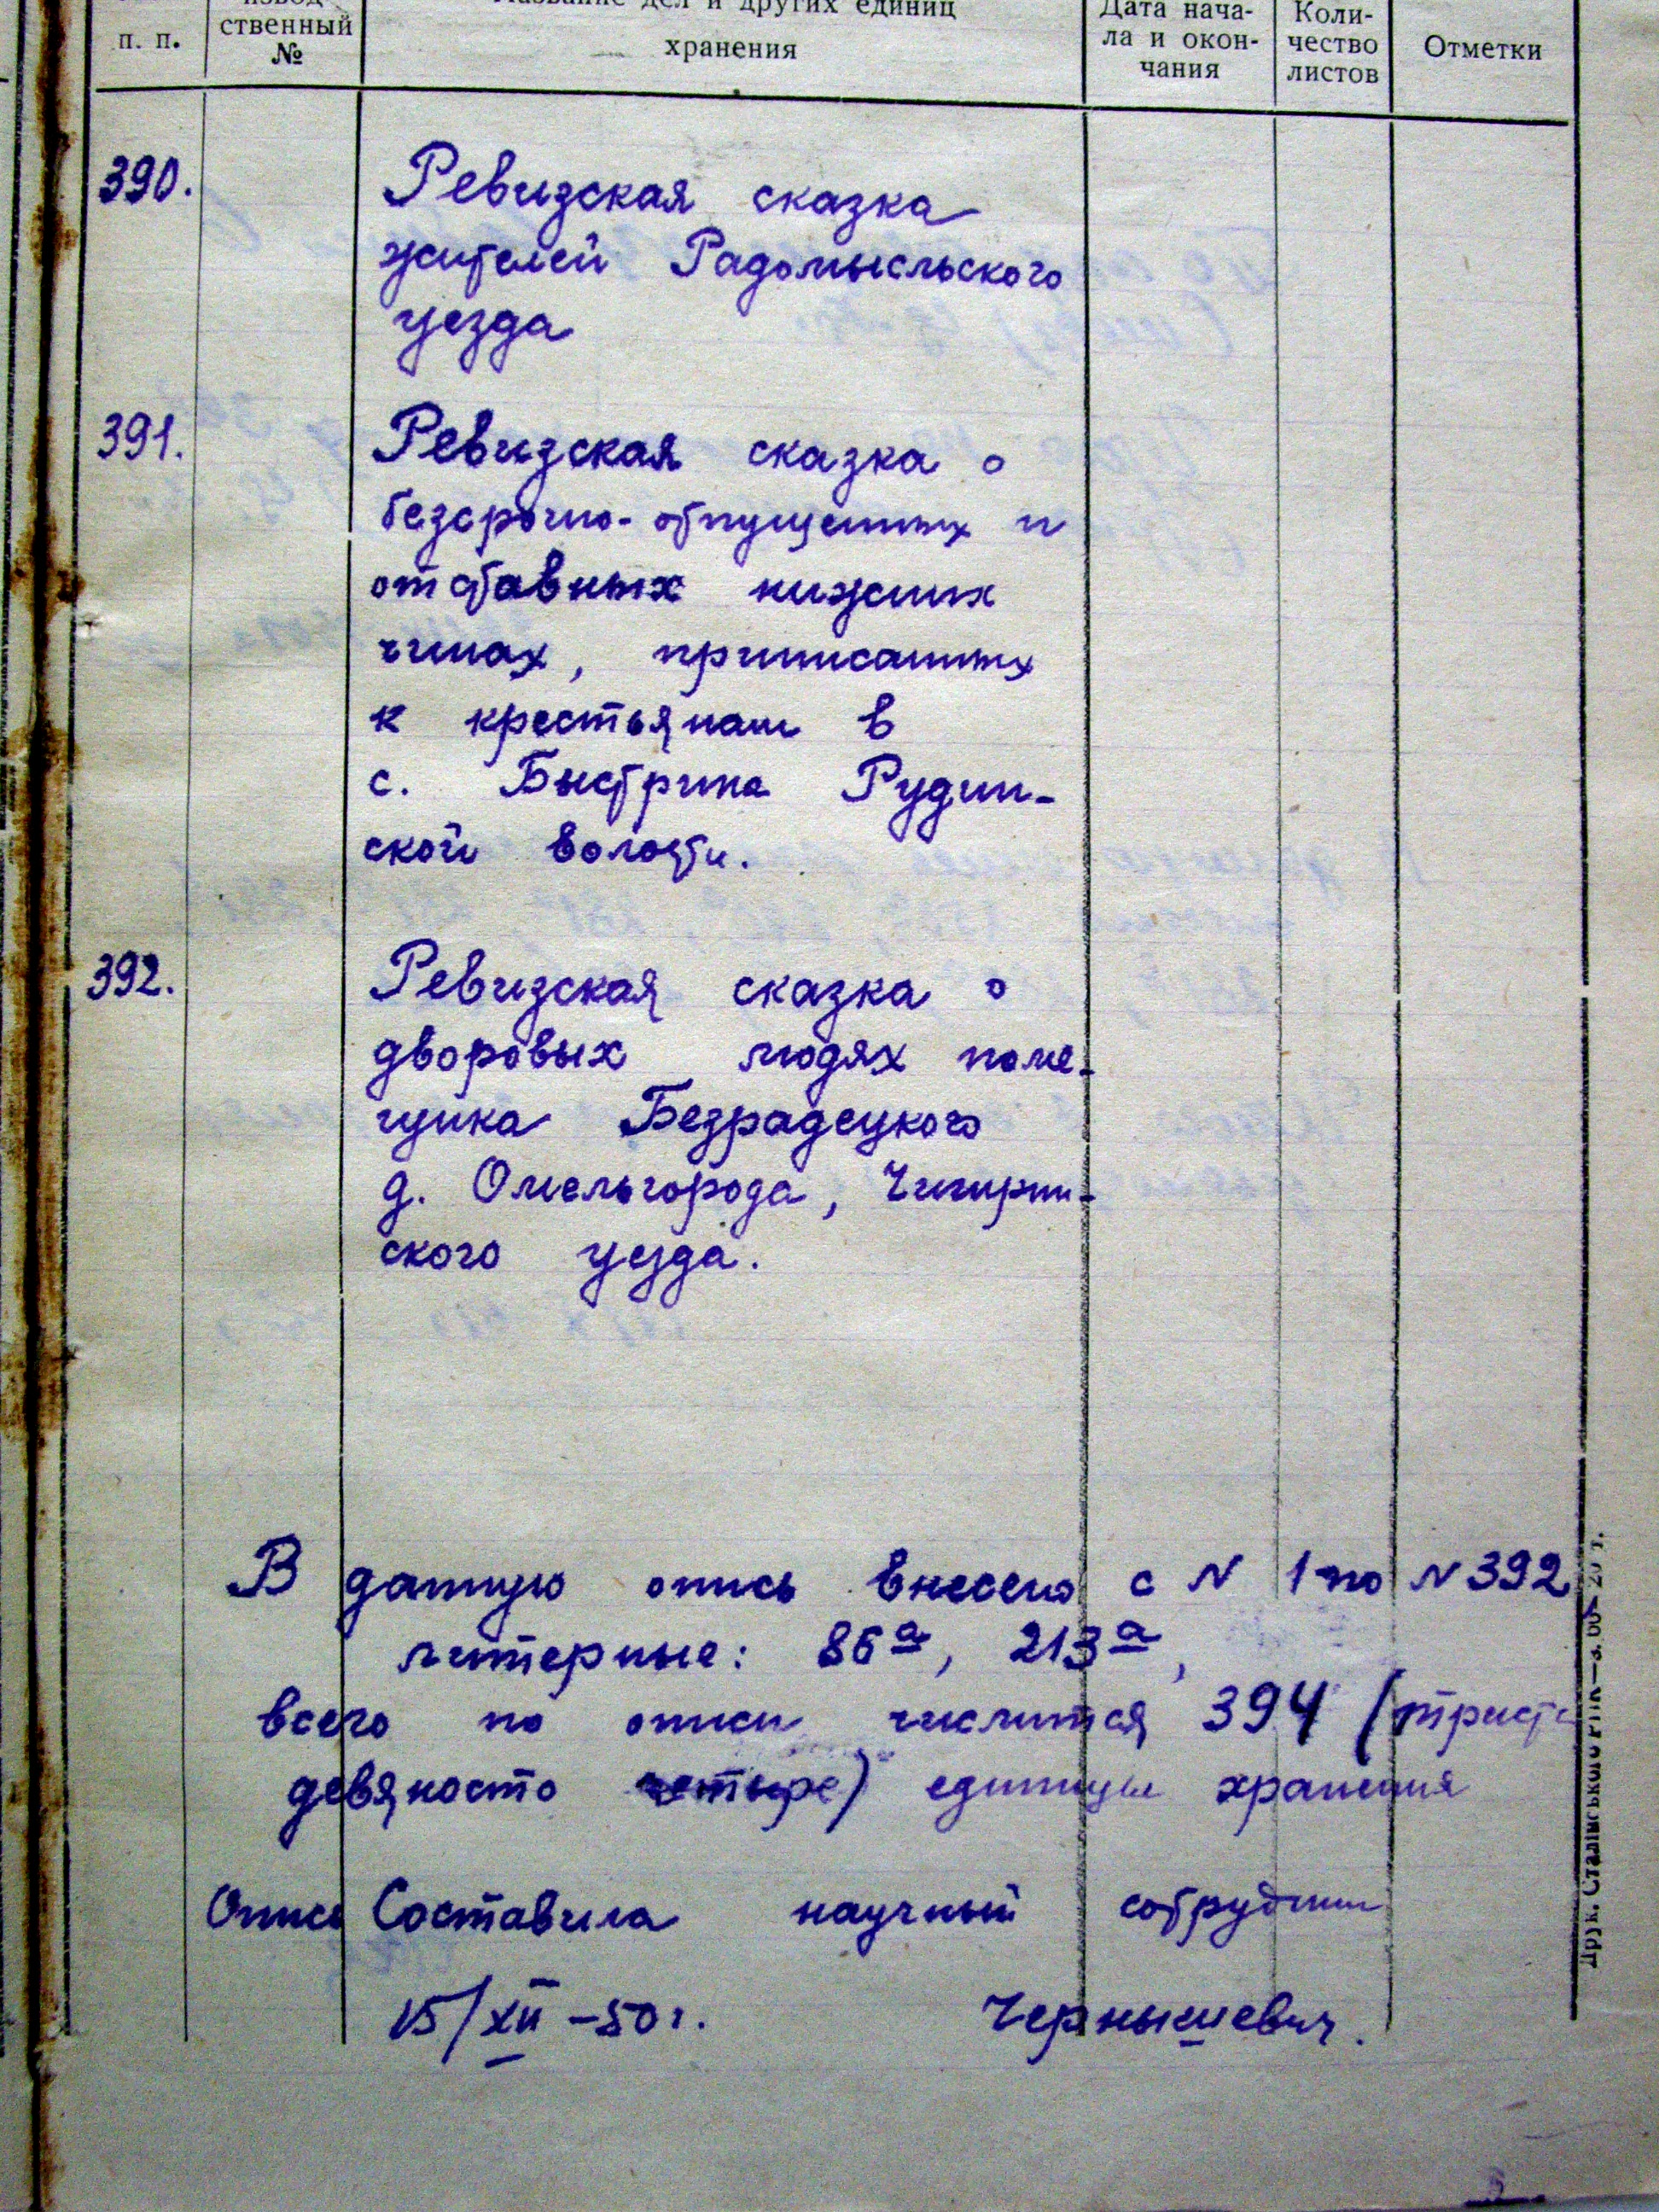 п. п.
ственный
№
Название дел и других единиц
хранения
Дата нача-
ла и окон-
чания
Коли-
чество
листов
Отметки
390.
Ревизская сказка
жителей Радомысльского
уезда
391.
Ревизская сказка о
безсрочно-отпущенных и
отставных нижних
чинах, приписанных
к крестьянам в
с. Быстрика Рудин-
ской волости.
392.
Ревизская сказка о
дворовых людях поме-
щика Безрадецкого
д. Омельгорода, Чигирин-
ского уезда.
В данную опись внесено с N 1 по N 392
литерные: 86а, 213а,
всего по описи числится 394 (триста
девяносто четыре) единицы хранения
Опись Составила научный сотрудник
15/XII-50 г. Чернышевич.
Друк. Сталінського